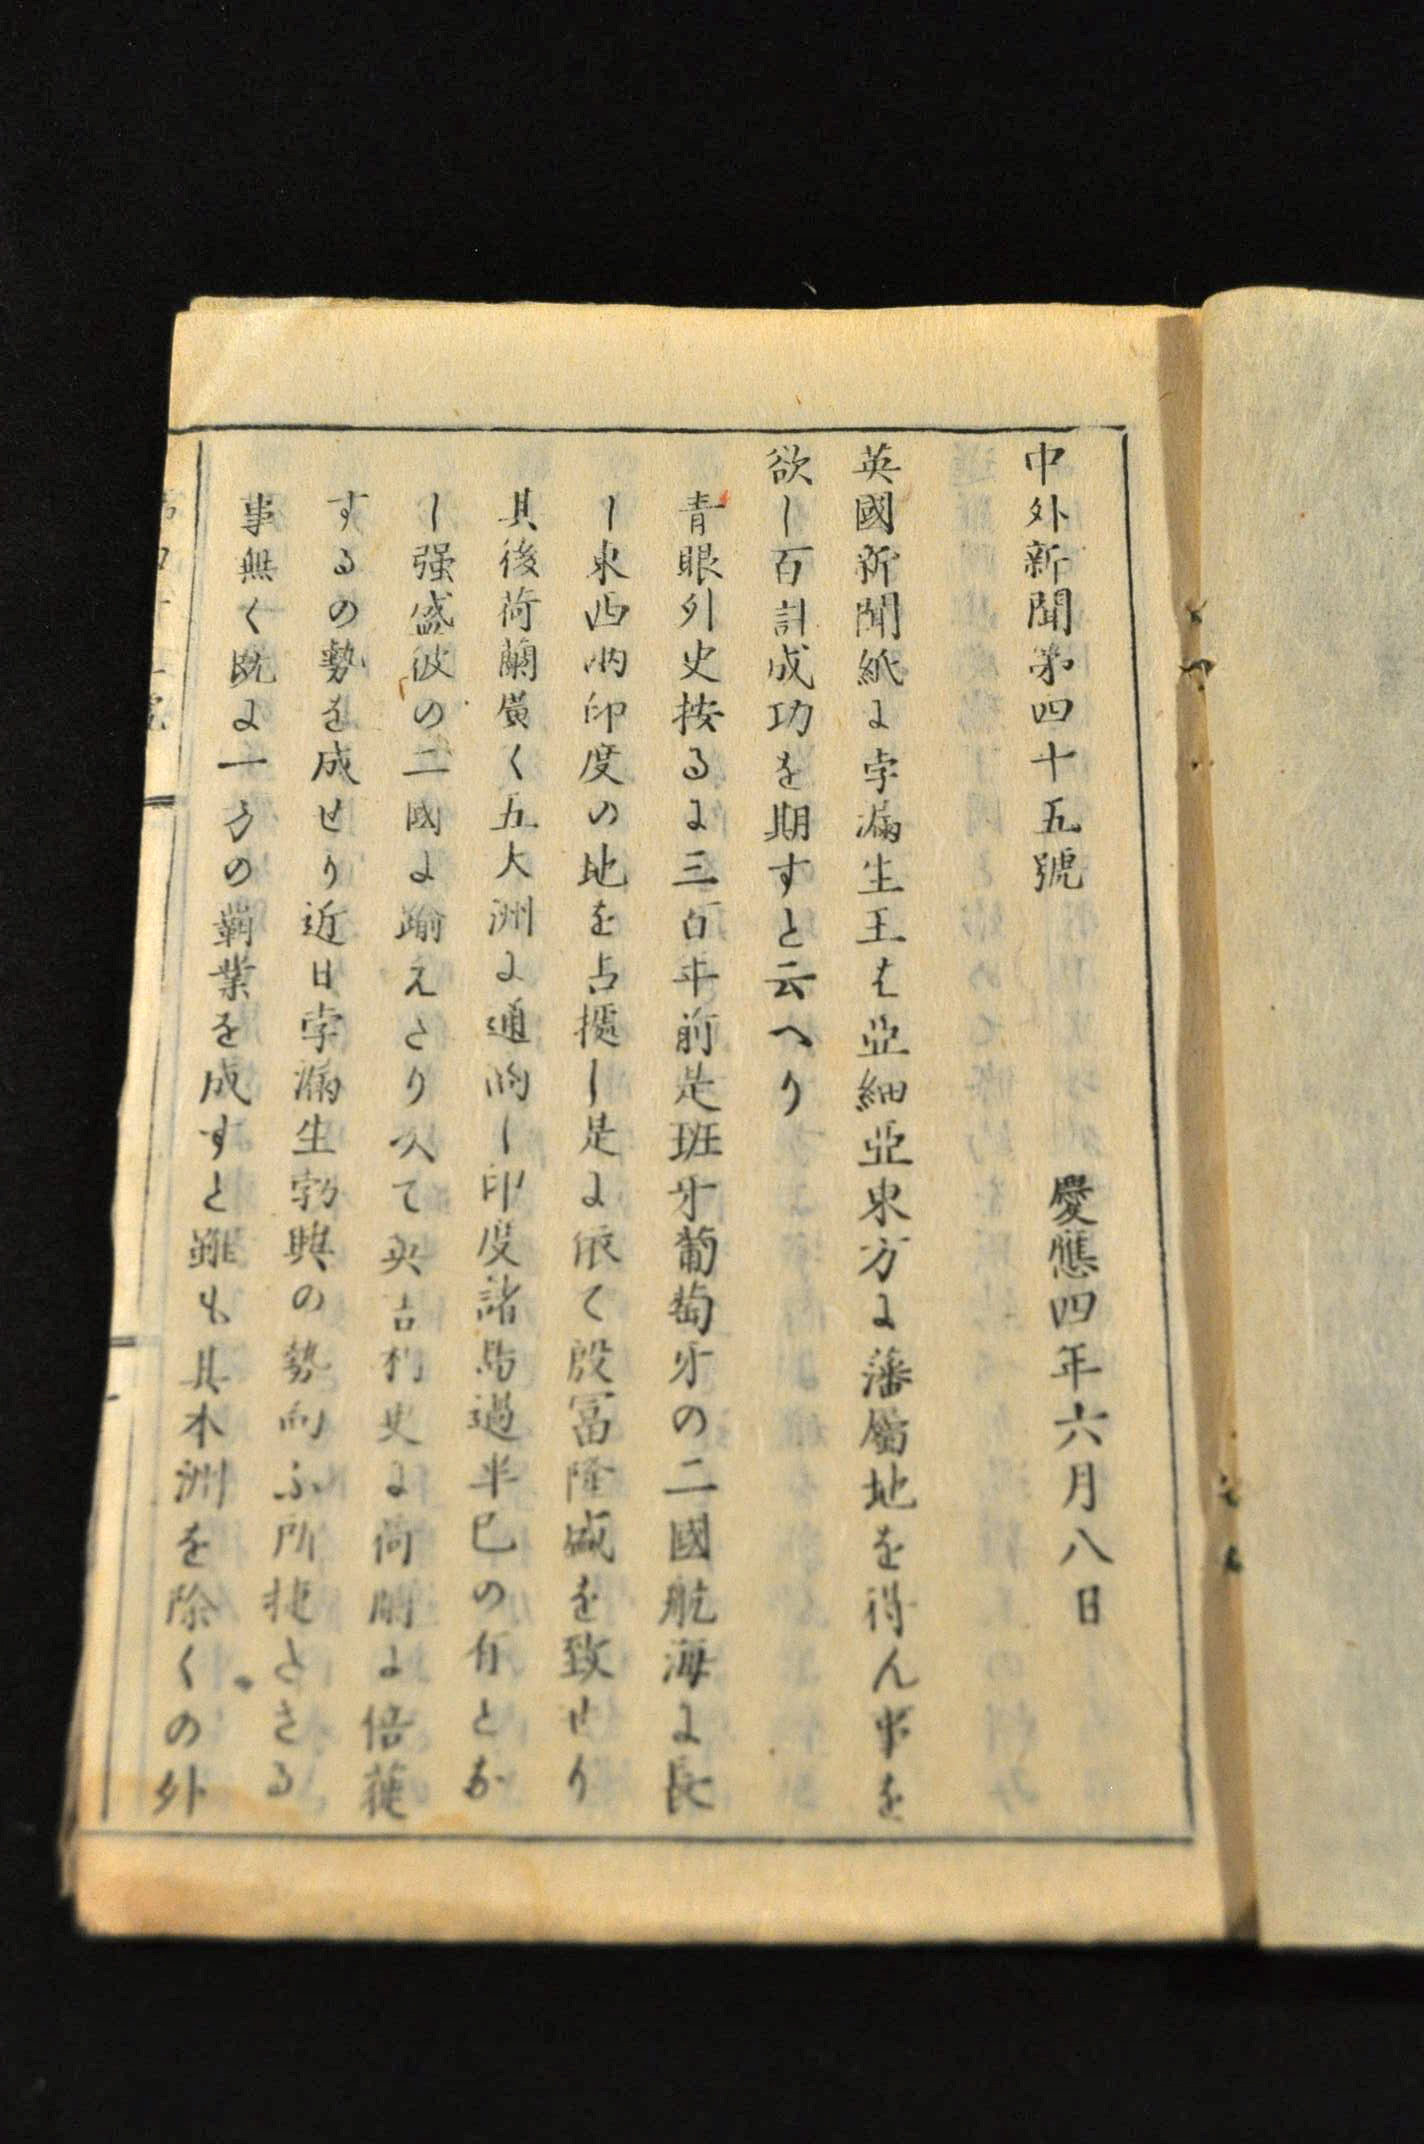 中外新聞第四十五號
慶應四年六月八日
英國新聞紙に孛漏生王は亞細亞東方に藩屬地を得ん事を
欲し百計成功を期すと云へり
青眼外史按るに三百年前是班牙葡萄牙の二國航海に長
し東西兩印度の地を占據し是に依て殷冨隆盛を致せり
其後荷蘭廣く五大洲に通商し印度諸島過半己の有とな
し强盛彼の二國に踰えたり又て英吉利更に荷蘭に倍蓰
するの勢を成せり近日孛漏生勃興の勢向ふ所捷たさる
事無く既に一方の覇業を成すと雖も其本洲を除くの外